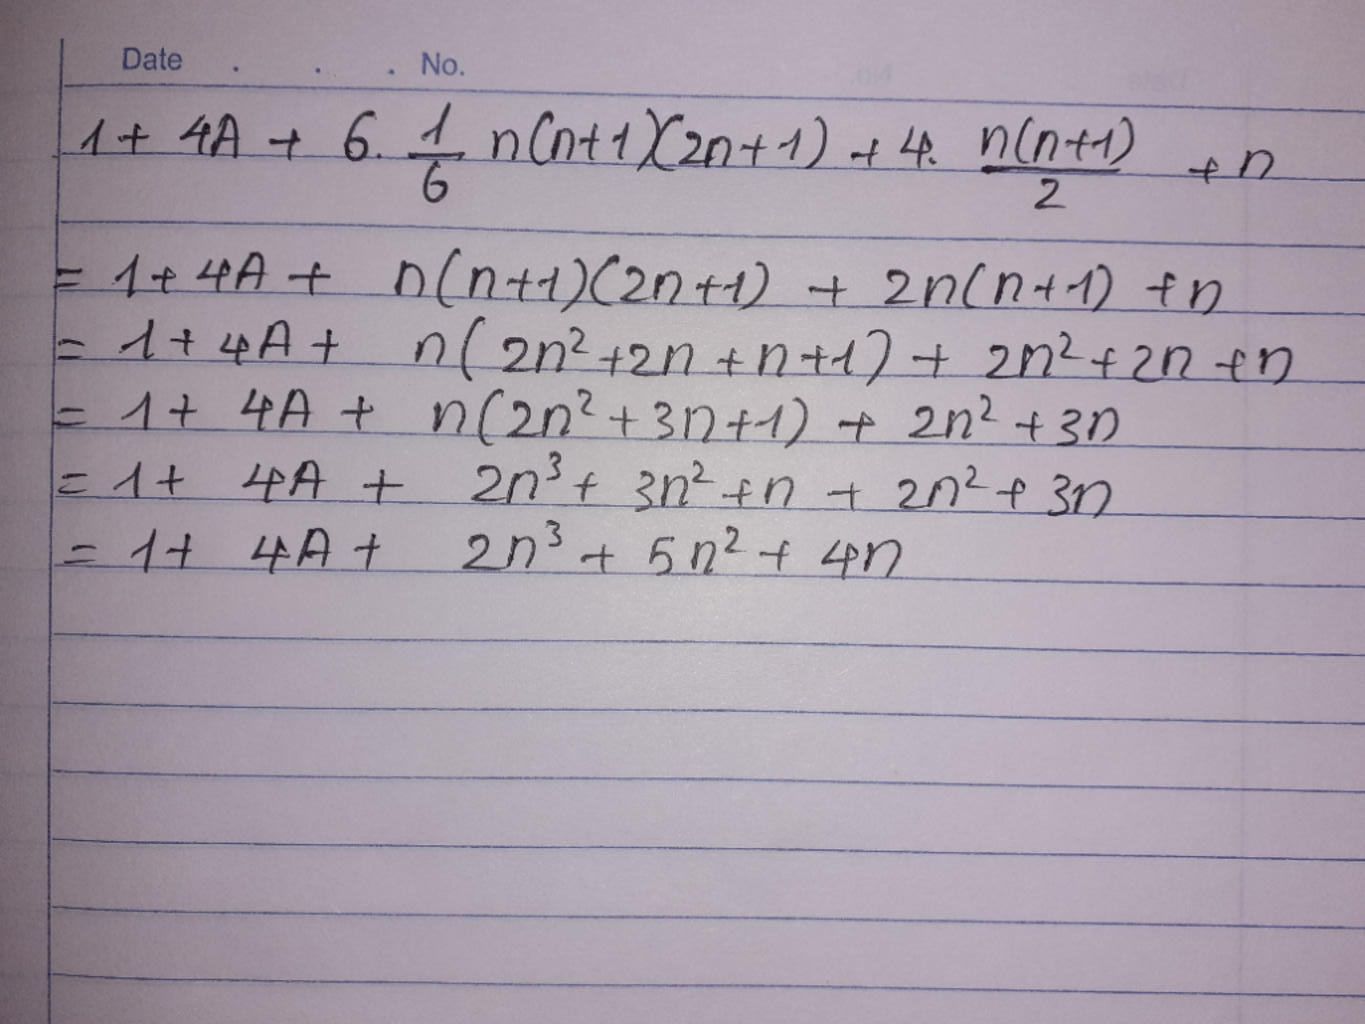 Date . . . No.
1 + 4A + 6. 1/6 n(n+1)(2n+1) + 4. n(n+1)/2 + n
= 1 + 4A + n(n+1)(2n+1) + 2n(n+1) + n
= 1 + 4A + n(2n² + 2n + n + 1) + 2n² + 2n + n
= 1 + 4A + n(2n² + 3n + 1) + 2n² + 3n
= 1 + 4A + 2n³ + 3n² + n + 2n² + 3n
= 1 + 4A + 2n³ + 5n² + 4n